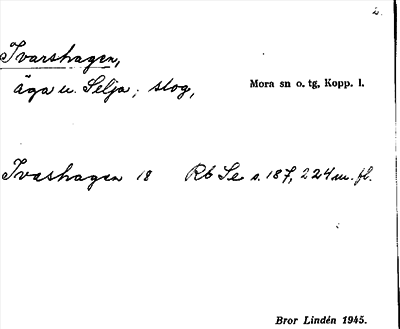 2.
Ivarshagen,
äga u. Selja; slog,
Mora sn o. tg, Kopp. l.
Ivashagen 18 Rb Se s. 187, 224 m. fl.
Bror Lindén 1945.